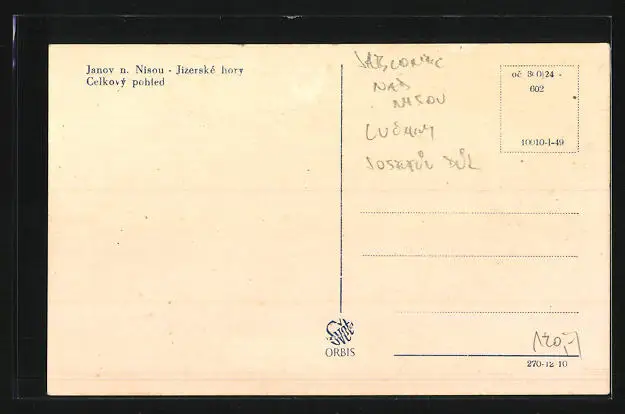 Janov n. Nisou - Jizerské hory
Celkový pohled
JABLONEC
NAD
NISOU
LUČANY
JOSEFŮV DŮL
oč 3(0)24 -
602
10010-I-49
Svět
ORBIS
120,-
270-12-10